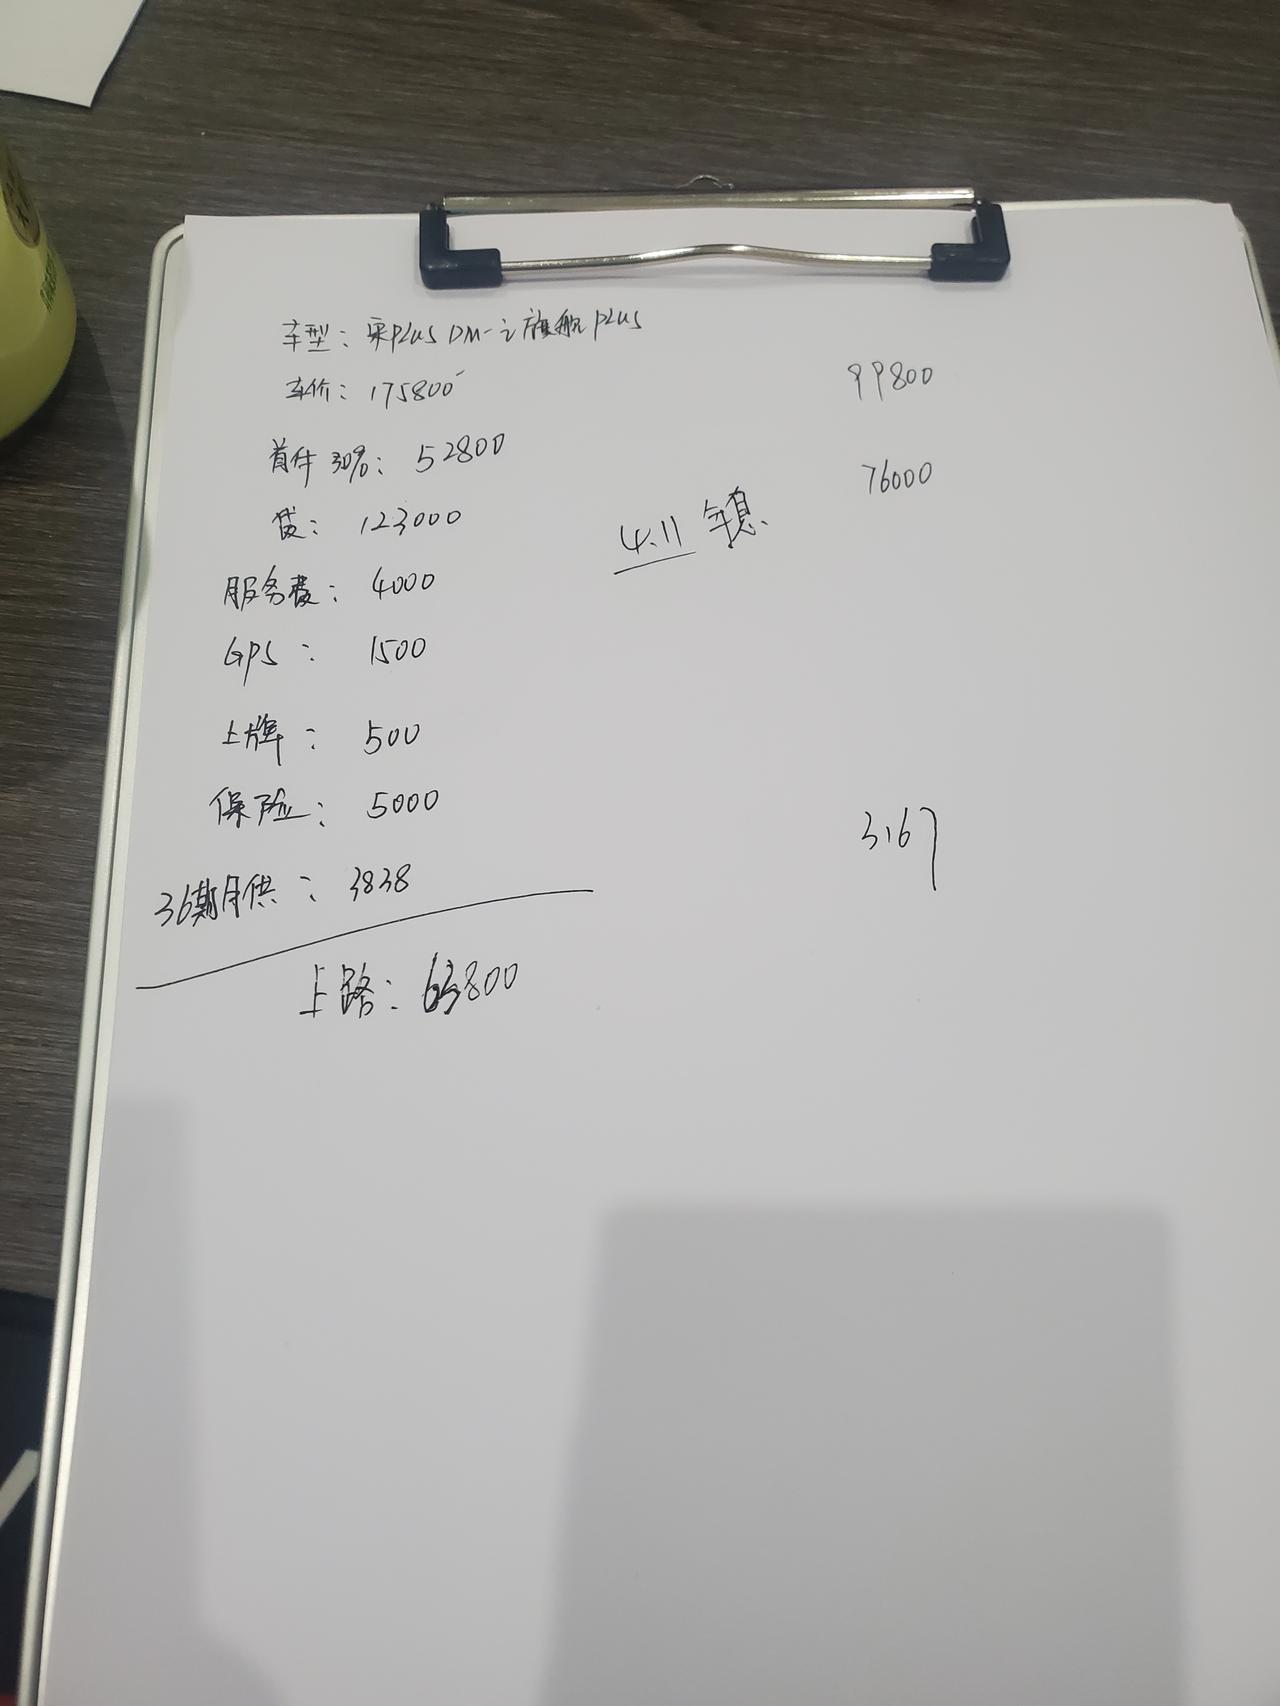 车型：宋PLUS DM-i 旗舰PLUS
车价：175800
99800
首付30%：52800
76000
贷：123000
4.11 年息
服务费：4000
GPS：1500
上牌：500
保险：5000
3167
36期月供：3838
上路：63800